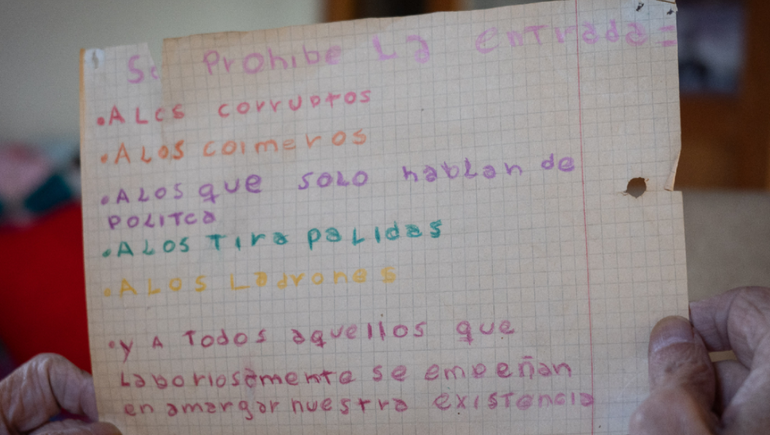 Se Prohibe La entrada =
• A Los corruptos
• A Los coimeros
• A Los que solo hablan de
politca
• A Los Tira palidas
• A Los Ladrones
• y A Todos aquellos que
Laboriosamente se empeñan
en amargar nuestra existencia